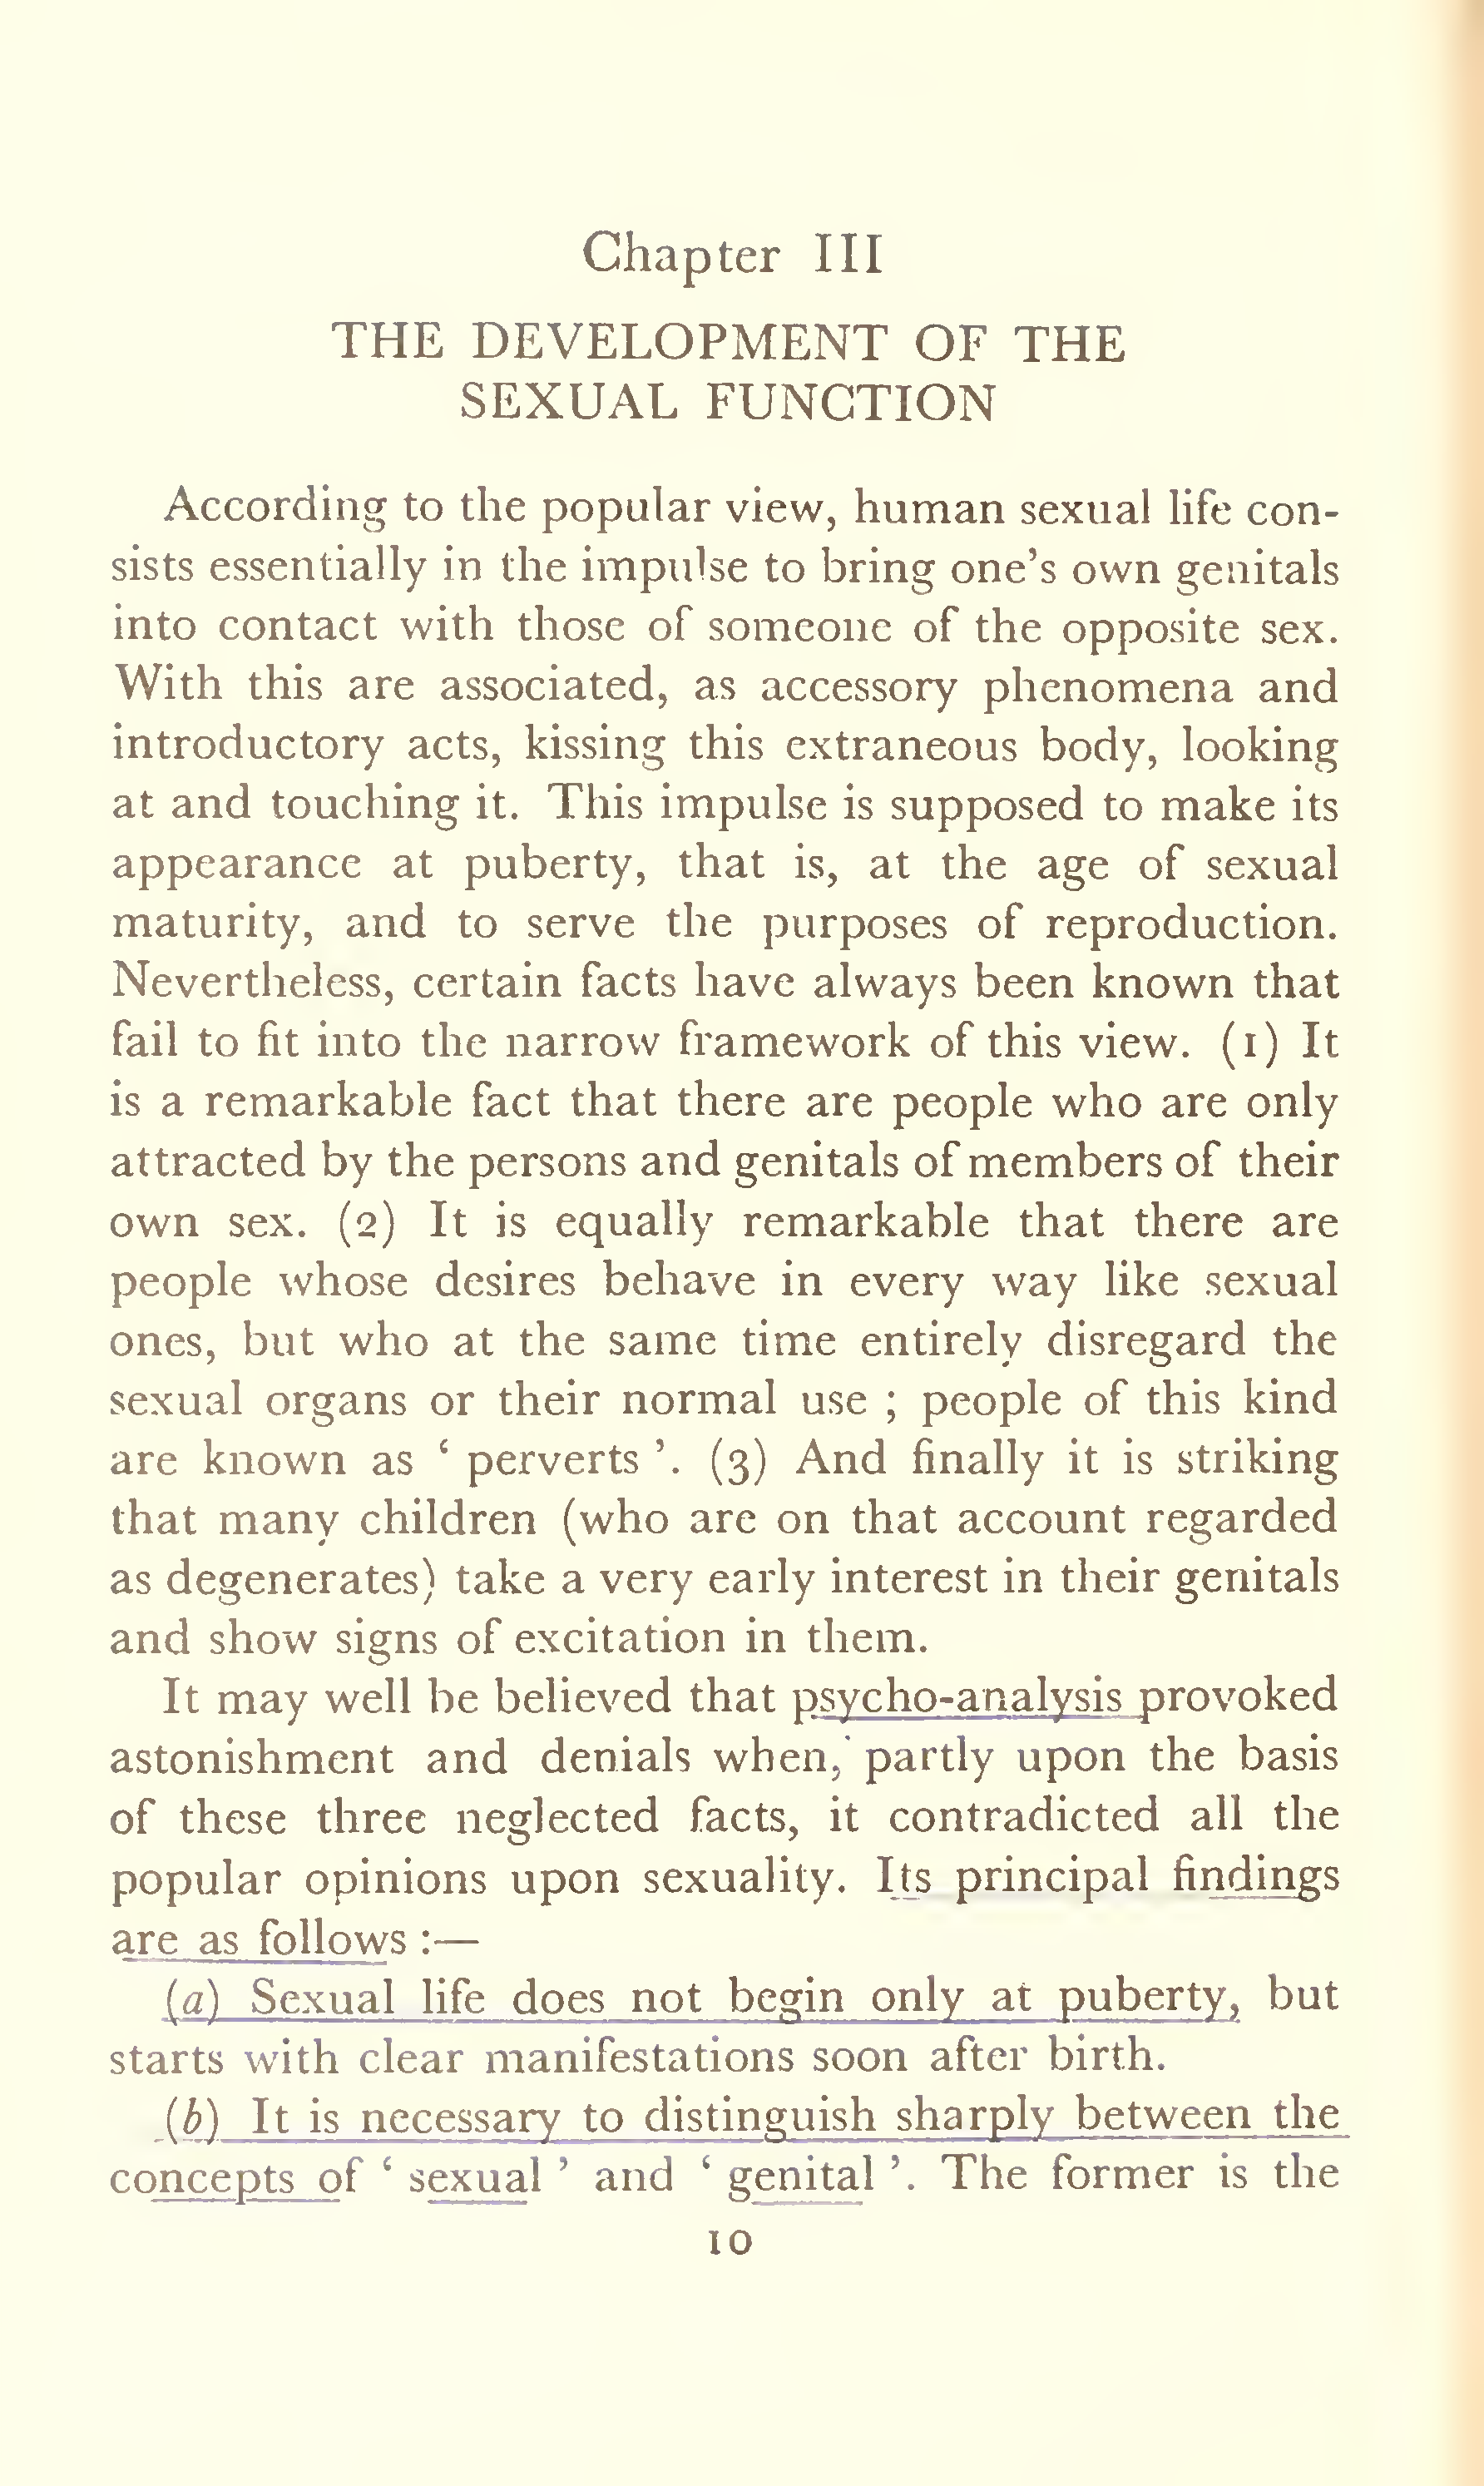 Chapter III
THE DEVELOPMENT OF THE
SEXUAL FUNCTION
According to the popular view, human sexual life con-
sists essentially in the impulse to bring one's own genitals
into contact with those of someone of the opposite sex.
With this are associated, as accessory phenomena and
introductory acts, kissing this extraneous body, looking
at and touching it. This impulse is supposed to make its
appearance at puberty, that is, at the age of sexual
maturity, and to serve the purposes of reproduction.
Nevertheless, certain facts have always been known that
fail to fit into the narrow framework of this view. (1) It
is a remarkable fact that there are people who are only
attracted by the persons and genitals of members of their
own sex. (2) It is equally remarkable that there are
people whose desires behave in every way like sexual
ones, but who at the same time entirely disregard the
sexual organs or their normal use ; people of this kind
are known as ‘ perverts ’. (3) And finally it is striking
that many children (who are on that account regarded
as degenerates) take a very early interest in their genitals
and show signs of excitation in them.
It may well be believed that psycho-analysis provoked
astonishment and denials when, partly upon the basis
of these three neglected facts, it contradicted all the
popular opinions upon sexuality. Its principal findings
are as follows :—
(a) Sexual life does not begin only at puberty, but
starts with clear manifestations soon after birth.
(b) It is necessary to distinguish sharply between the
concepts of ‘ sexual ’ and ‘ genital ’. The former is the
10